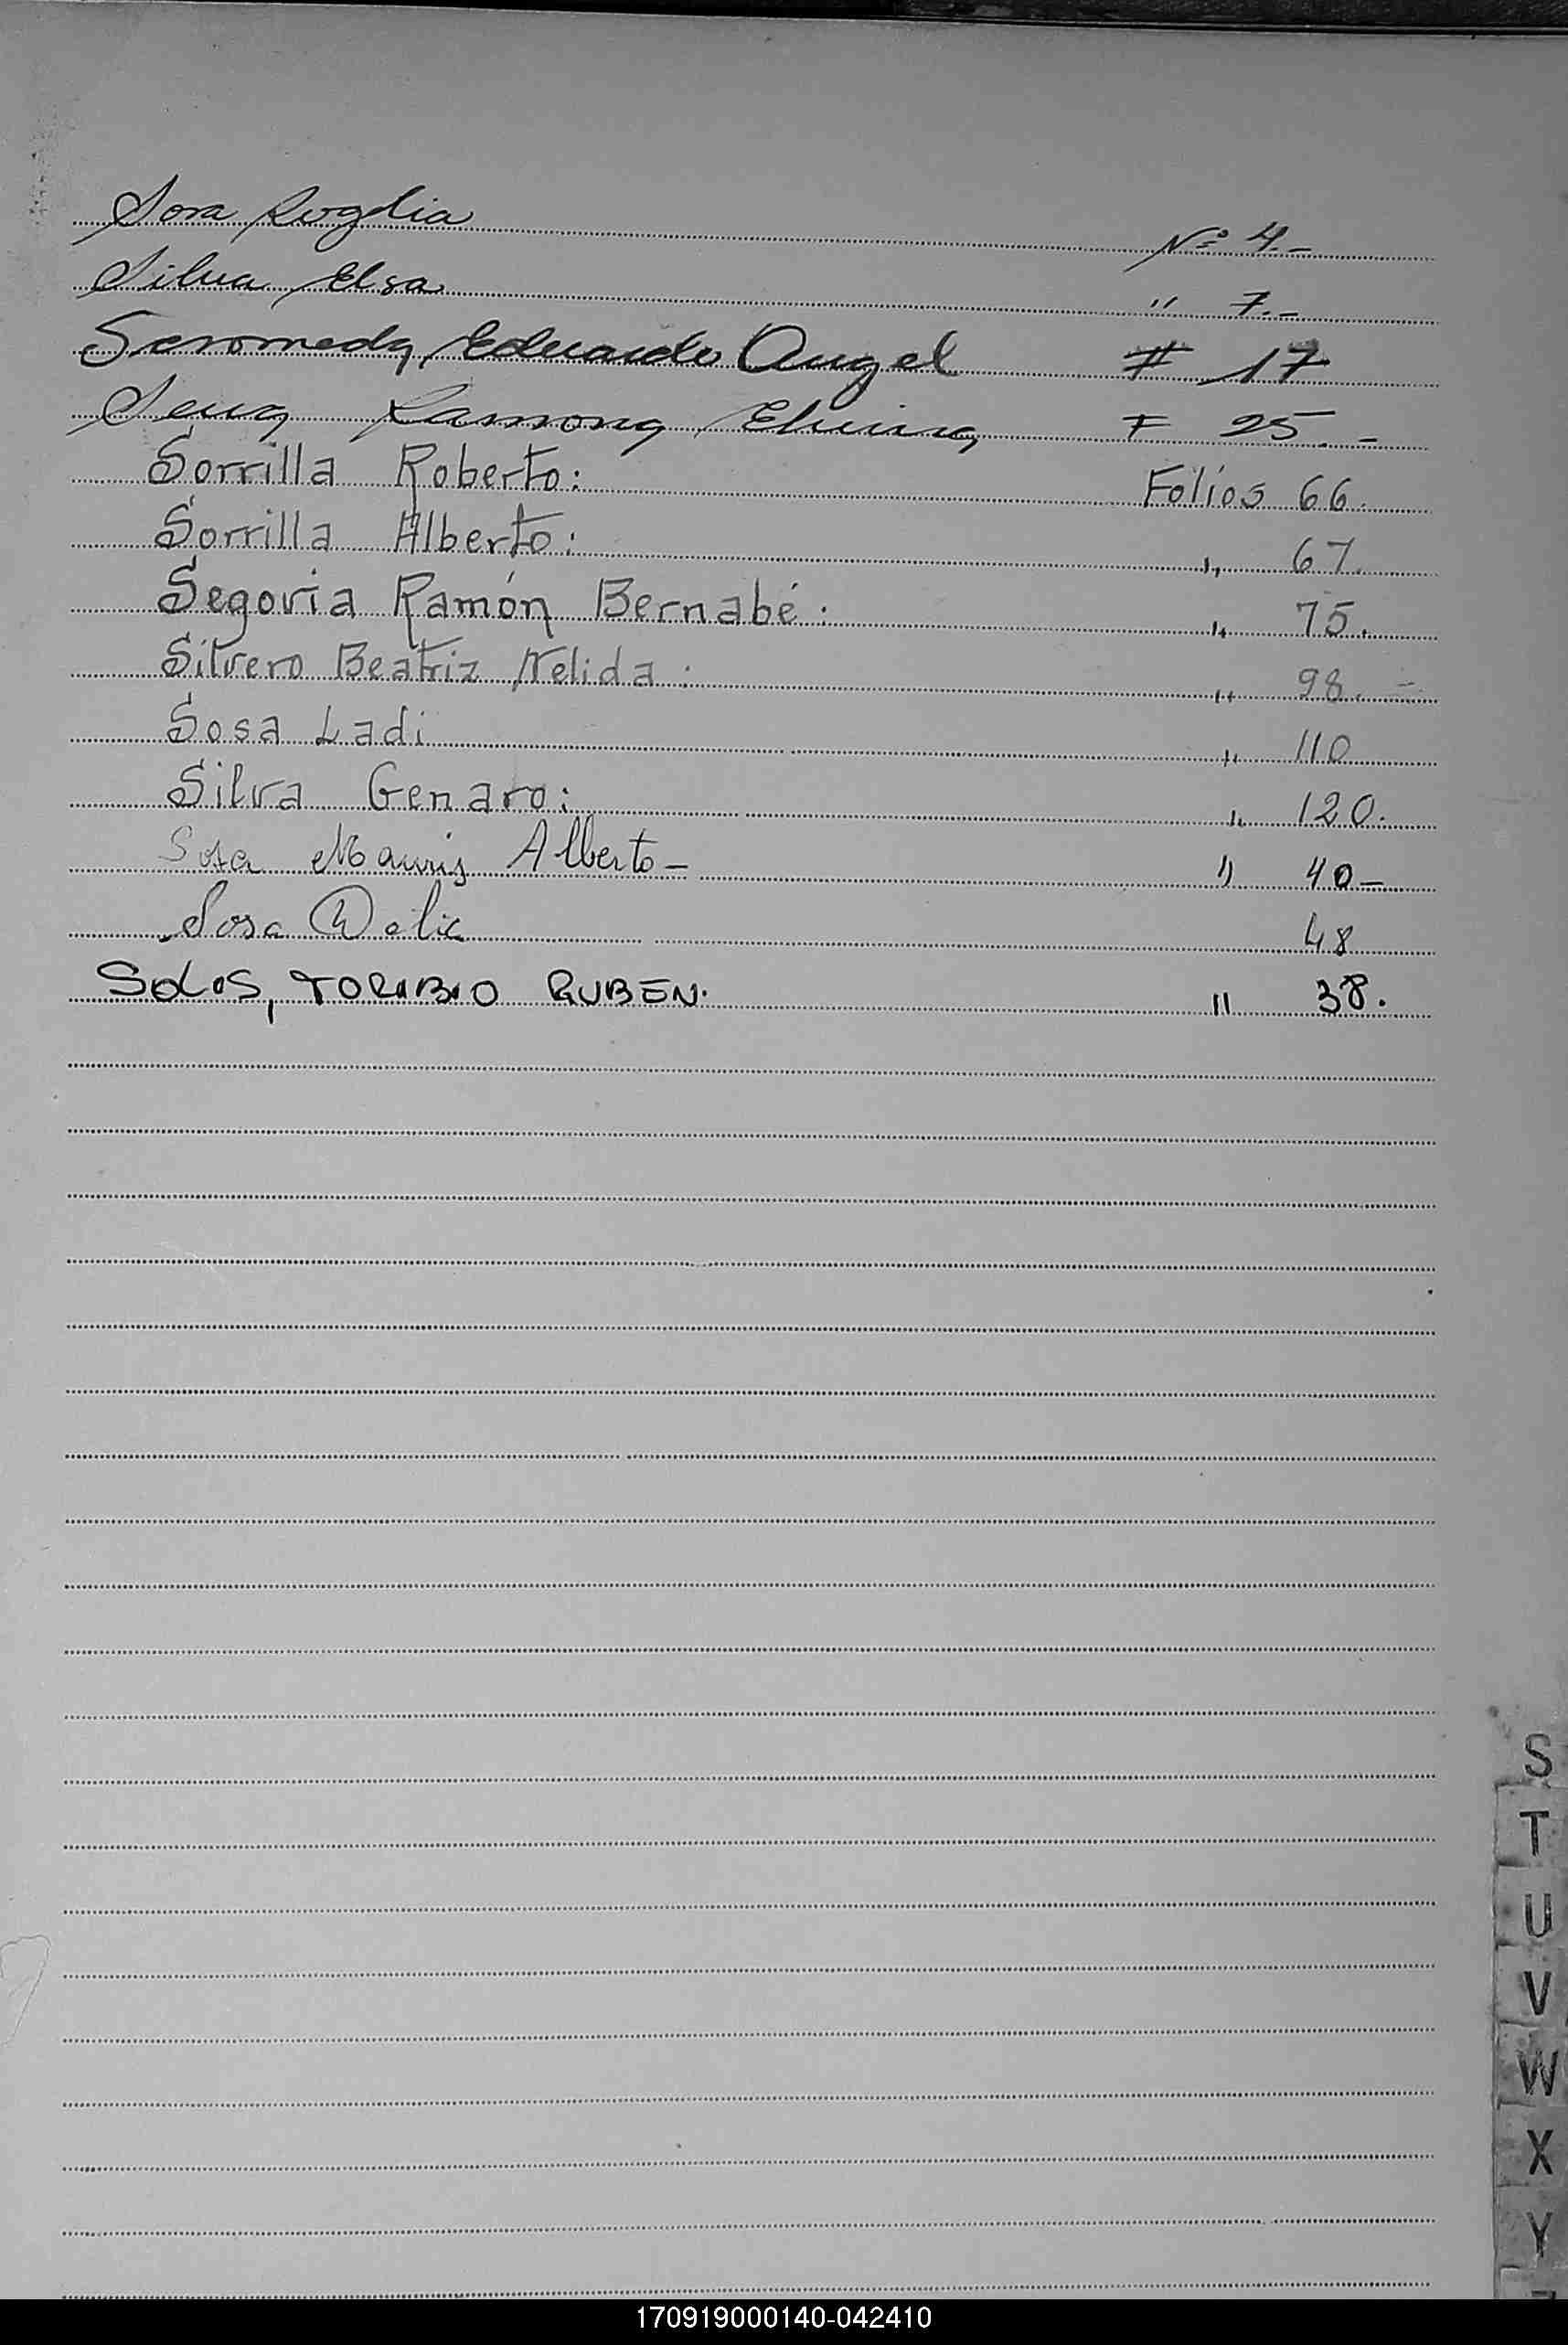 Sosa Rogelia Nº 4.-
Silva Elsa " 7.-
Eduardo Angel F 17
Ramona Elvira F 25.-
Sorrilla Roberto: Folios 66.
Sorrilla Alberto: " 67.
Segovia Ramón Bernabé: " 75.
Silvero Beatriz Nelida: " 98.-
Sosa Ladi " 110
Silva Genaro: " 120.
Sosa Alberto- " 40-
Sosa 48
SOLIS, TORIBIO RUBEN. " 38.
S
T
U
V
W
X
Y
170919000140-042410